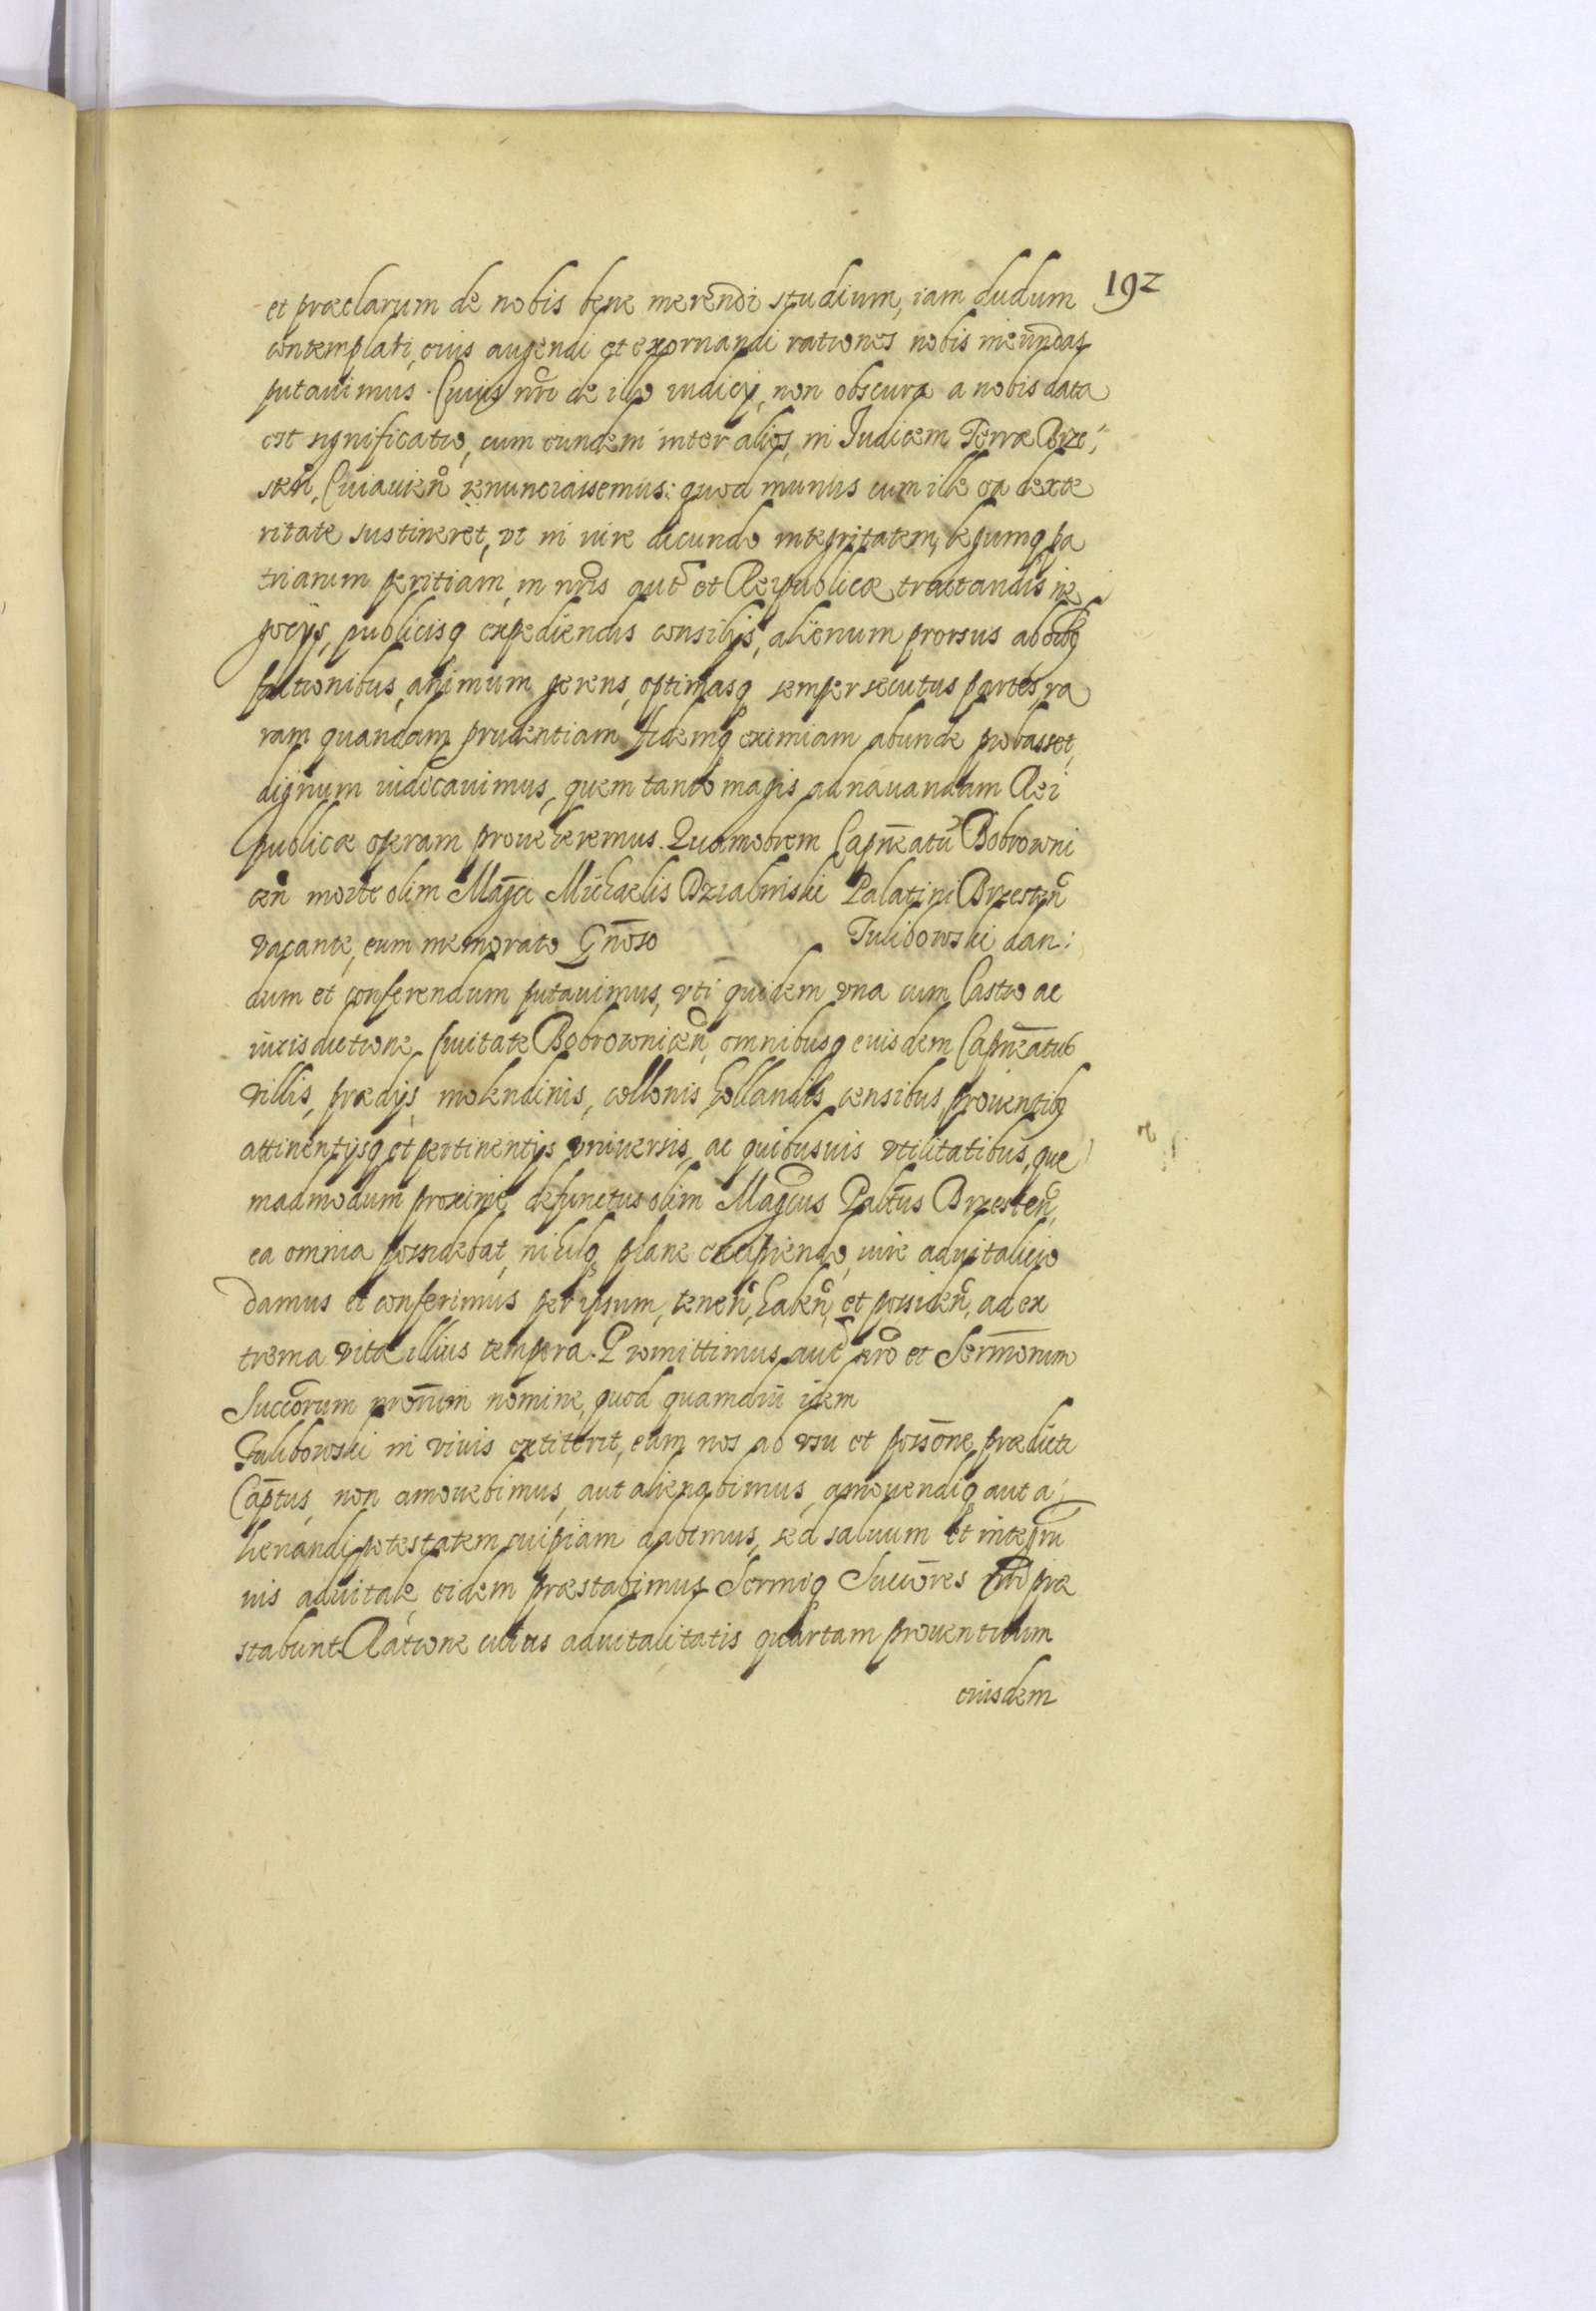 192
et præclarum de nobis bene merendi studium, iam dudum
contemplati, eius augendi et exornandi rationes nobis ineundas
putauimus. Cuius nri de illo iudicij, non obscura a nobis data
est significatio, cum eundem inter alios, in Iudicem Terræ Brze
sten, Cuiauien renunciassemus: quod munus cum ille ea dexte
ritate sustineret, vt in iure dicundo integritatem, legumq pa
triarum peritiam, in nris aut et Reipublicæ tractandis ne
gocijs, publicisq expediendis consilijs, alienum prorsus ab oibq
factionibus, animum gerens, optimasq semper secutus partes, ra
ram quandam prudentiam fidemq eximiam abunde probasset,
dignum iudicauimus, quem tanto magis ad nauandam Rei
publicæ operam proueheremus. Quamobrem Capneatu Bobrowni
cen morte olim Magci Michaelis Dzialinskii Palatini Brzesten
vacante, eum memorato Gnoso Tulibowskii dan:
dum et conferendum putauimus, vti quidem vna cum Castro ac
iurisdictione, Ciuitate Bobrownicen, omnibusq eiusdem Capneatus
villis, prædijs, molendinis, collonis hollandis censibus, prouentibq
attinentijsq et pertinentijs vniuersis, ac quibusuis vtilitatibus, que
madmodum proxime defunctus olim Magcus Paltus Brzesten,
ea omnia possidebat, nihilq plane excipiendo, iure aduitalicio
damus et conferimus per ipsum, tenen, haben, et possiden, ad ex
trema vitæ illius tempora. Promittimus aut nro et Sermorum
Succorum nrorum nomine, quod quamdiu idem
Tulibowski in viuis extiterit, eum nos ab vsu et possone prædicti
Captus, non amouebimus, aut alienabimus, amouendiq aut a
lienandi potestatem cuipiam dabimus, sed saluum et integru
ius aduitale eidem præstabimus Sermiq Succores nri præ
stabunt. Ratione cuius aduitalitatis quartam prouentuum
eiusdem